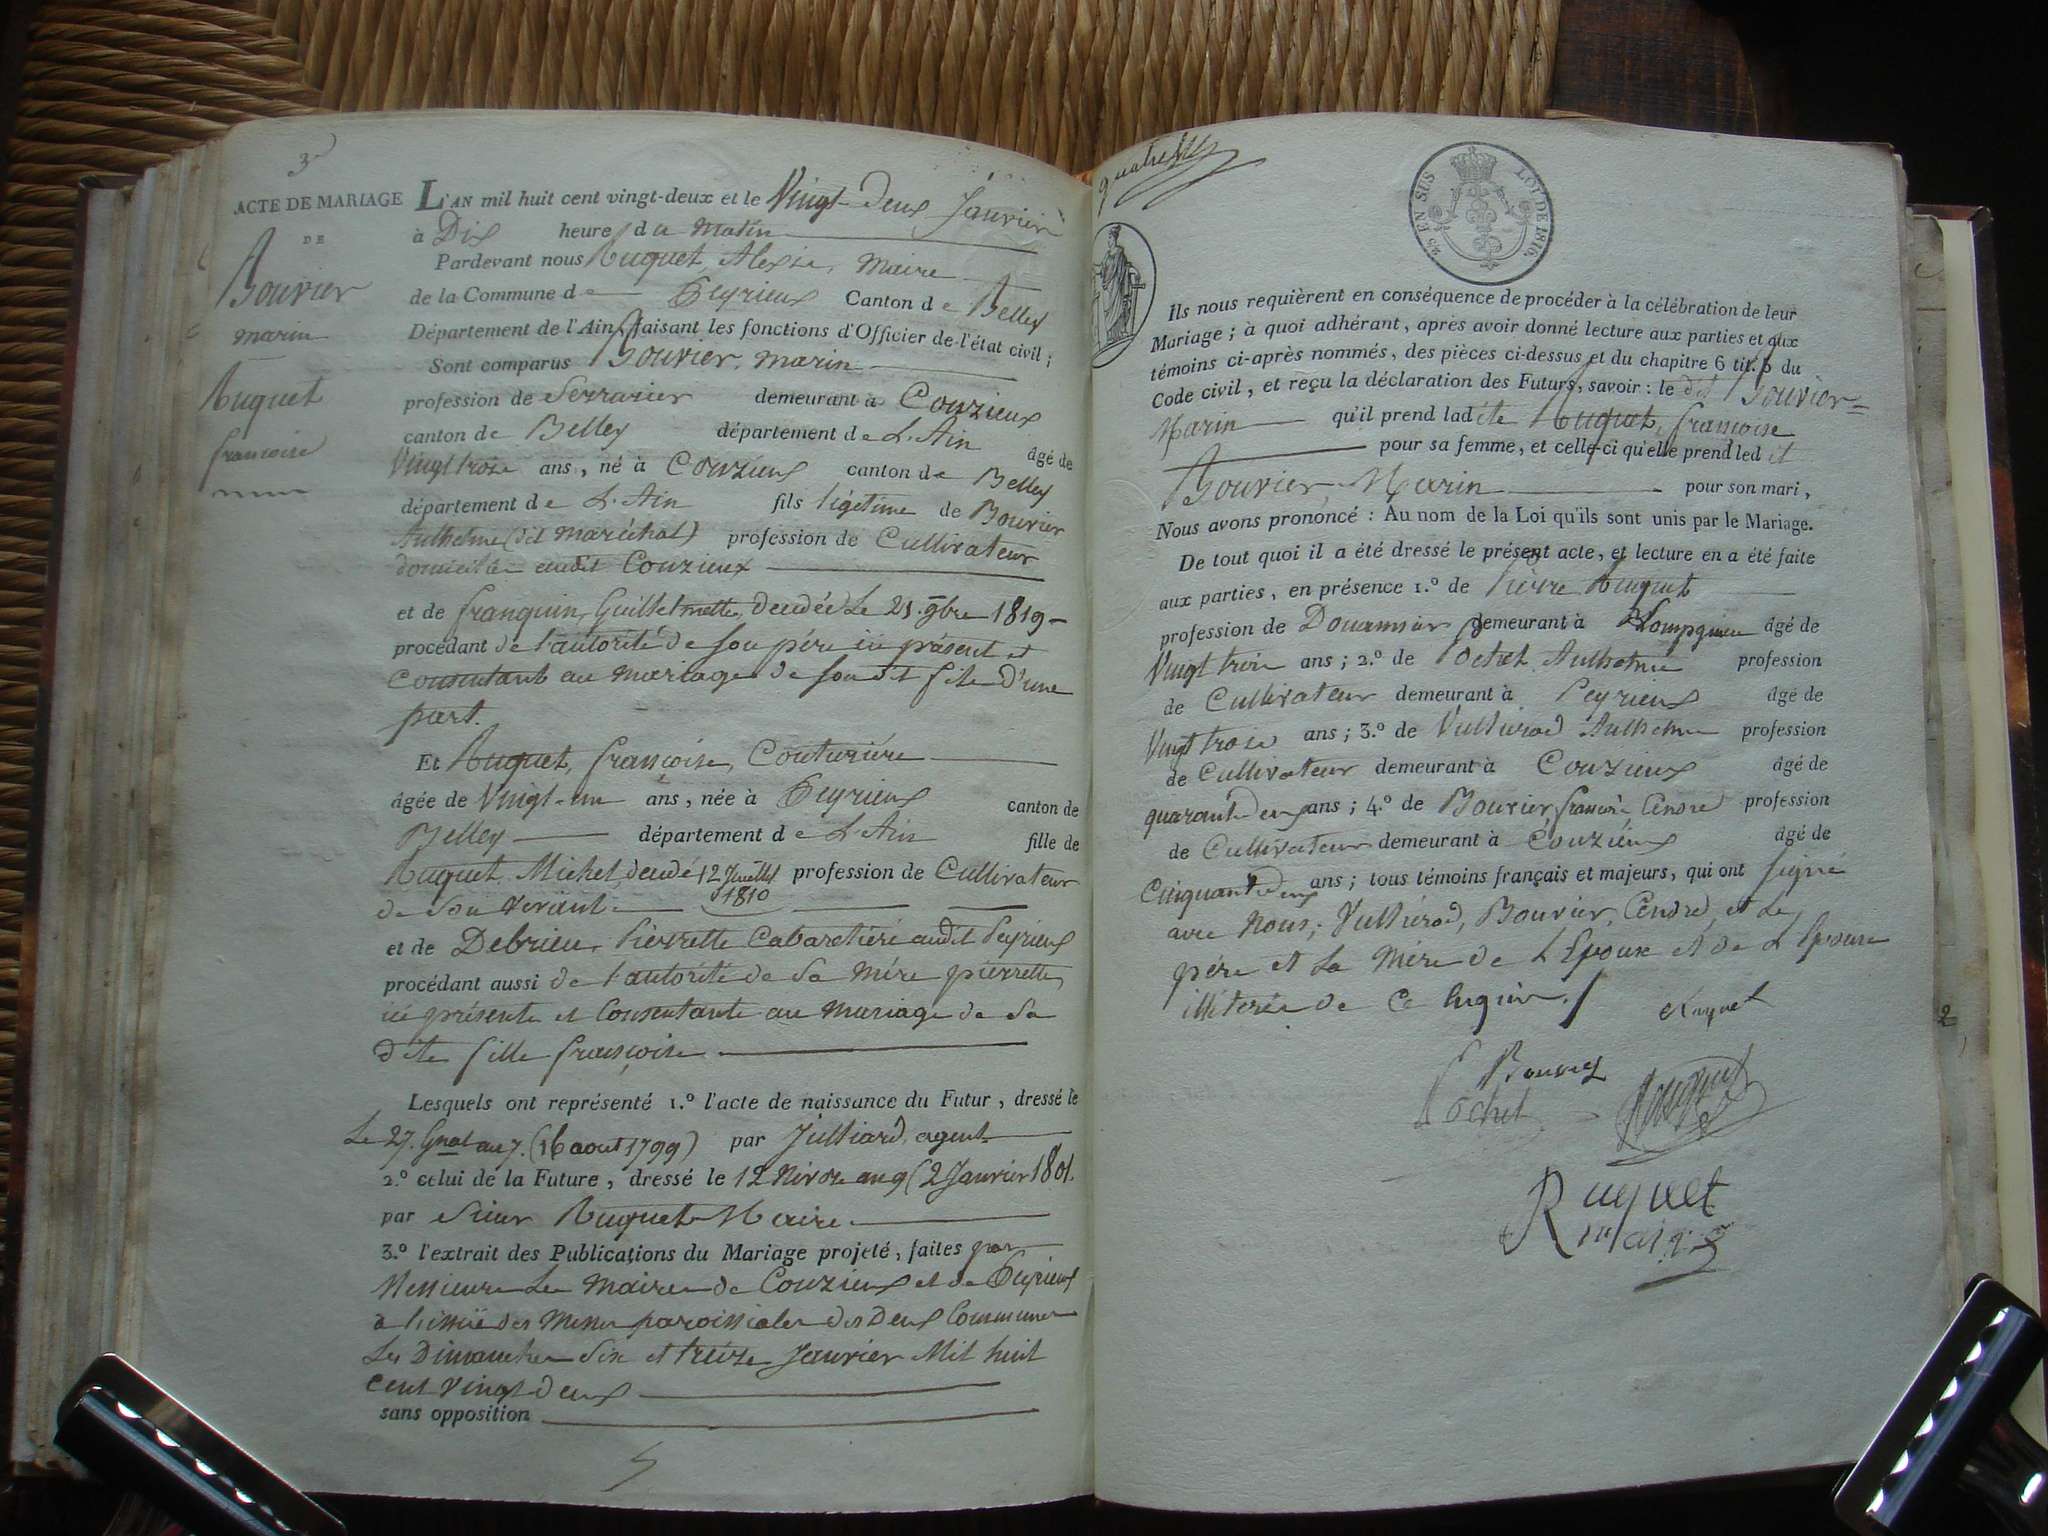 3
ACTE DE MARIAGE
DE
Bouvier
marin
Ruguet
francoise
L'AN mil huit cent vingt-deux et le Vingt-Deux Janvier
à Dix heure du matin
Pardevant nous Ruguet, Alexis, Maire
de la Commune de Peyrieux Canton de Belley
Département de l'Ain, faisant les fonctions d'Officier de l'état civil;
Sont comparus Bouvier, marin
profession de Serrurier demeurant à Couzieux
canton de Belley département de L'Ain âgé de
Vingt trois ans, né à Couzieux canton de Belley
département de L'Ain fils légitime de Bouvier
Anthelme (dit maréchal) profession de Cultivateur
domicilié audit Couzieux
et de franquin, Guillelmette, décédée Le 25 9bre 1819
procédant de l'autorité de son père ici présent et
Consentant au mariage de son dit fils d'une
part.
Et Ruguet, françoise, Couturière
âgée de Vingt-un ans, née à Peyrieux canton de
Belley département de L'Ain fille de
Ruguet Michel, décédé 12 Juillet 1810 profession de Cultivateur
de son vivant
et de Debrieu, Pierrette Cabaretière audit Peyrieux
procédant aussi de l'autorité de sa mère pierrette,
ici présente et Consentante au mariage de Sa
dite fille françoise
Lesquels ont représenté 1.º l'acte de naissance du Futur, dressé le
Le 27 an 7. (16 aout 1799) par Julliard, agent
2.º celui de la Future, dressé le 12 Nivose an 9 (2 Janvier 1801.
par Sieur Ruguet Maire
3.º l'extrait des Publications du Mariage projeté, faites par
Messieurs Les Maires de Couzieux et de Peyrieux
a l'issüe des Messes paroissiales des Deux Communes
Les Dimanches Six et treize Janvier Mil huit
cent vingt-deux
sans opposition
quatre
25 EN SUS LOI DE 1816.
Ils nous requièrent en conséquence de procéder à la célébration de leur
Mariage; à quoi adhérant, après avoir donné lecture aux parties et aux
témoins ci-après nommés, des pièces ci-dessus et du chapitre 6 tit. 5 du
Code civil, et reçu la déclaration des Futurs, savoir: le dit Bouvier
Marin qu'il prend ladite Ruguet, francoise
pour sa femme, et celle-ci qu'elle prend ledit
Bouvier, Marin pour son mari,
Nous avons prononcé: Au nom de la Loi qu'ils sont unis par le Mariage.
De tout quoi il a été dressé le présent acte, et lecture en a été faite
aux parties, en présence 1.º de Pierre Ruguet
profession de Douannier demeurant à âgé de
Vingt trois ans; 2.º de Pochet Anthelme profession
de Cultivateur demeurant à Peyrieux âgé de
Vingt trois ans; 3.º de Vullierod Anthelme profession
de Cultivateur demeurant à Couzieux âgé de
quarante deux ans; 4.º de Bouvier, françois, Cendre profession
de Cultivateur demeurant à Couzieux âgé de
Cinquante deux ans; tous témoins français et majeurs, qui ont Signé
avec Nous; Vulliérod, Bouvier, Cendre, et Le
père et La Mère de L'Epoux et de L'Epouse
illiterés de Ce
Ruguet
Bouvier
Pochet
Ruguet
maire
2